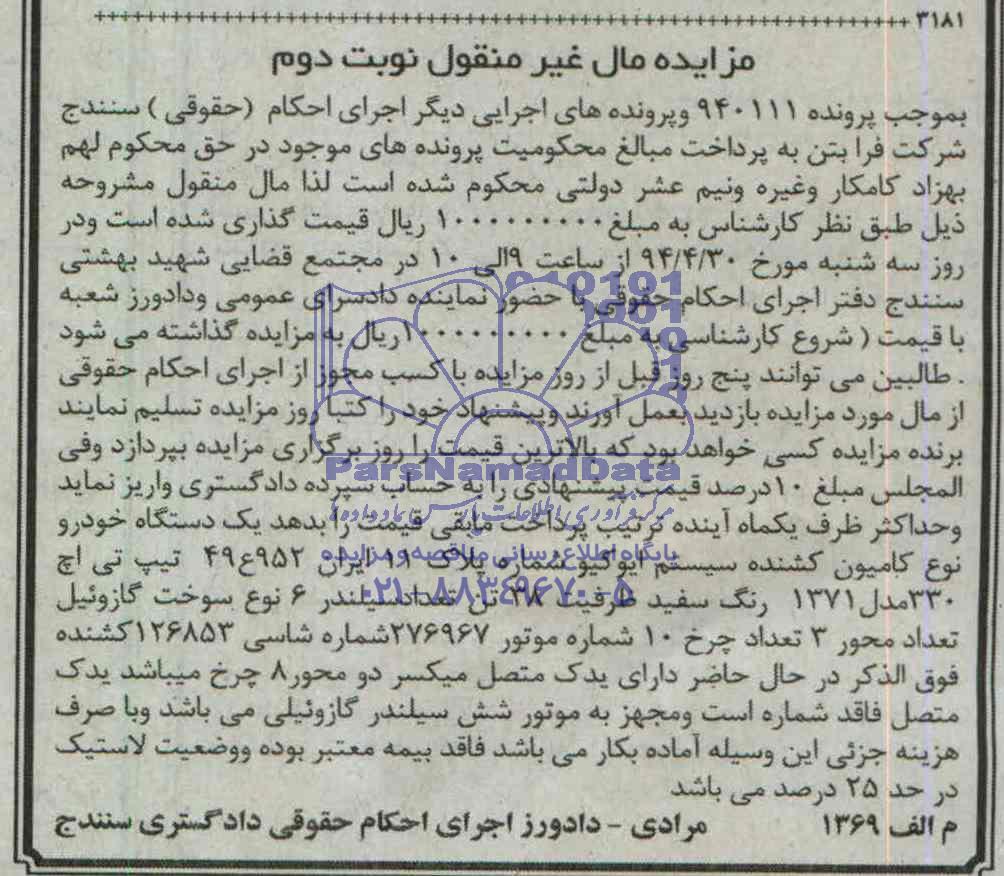 ۳۱۸۱ ++++++++++++++++++++++++++++++++++++++++++++++++
مزایده مال غیر منقول نوبت دوم
بموجب پرونده ۹۴۰۱۱۱ وپرونده های اجرایی دیگر اجرای احکام (حقوقی ) سنندج
شرکت فرا بتن به پرداخت مبالغ محکومیت پرونده های موجود در حق محکوم لهم
بهزاد کامکار وغیره ونیم عشر دولتی محکوم شده است لذا مال منقول مشروحه
ذیل طبق نظر کارشناس به مبلغ ۱۰۰۰۰۰۰۰۰۰ ریال قیمت گذاری شده است ودر
روز سه شنبه مورخ ۹۴/۴/۳۰ از ساعت ۹الی ۱۰ در مجتمع قضایی شهید بهشتی
سنندج دفتر اجرای احکام حقوقی با حضور نماینده دادسرای عمومی ودادورز شعبه
با قیمت ( شروع کارشناسی به مبلغ ۱۰۰۰۰۰۰۰۰۰ریال به مزایده گذاشته می شود
. طالبین می توانند پنج روز قبل از روز مزایده با کسب مجوز از اجرای احکام حقوقی
از مال مورد مزایده بازدید بعمل آورند وپیشنهاد خود را کتبا روز مزایده تسلیم نمایند
برنده مزایده کسی خواهد بود که بالاترین قیمت را روز برگزاری مزایده بپردازد وفی
المجلس مبلغ ۱۰درصد قیمت پیشنهادی را به حساب سپرده دادگستری واریز نماید
وحداکثر ظرف یکماه آینده ترتیب پرداخت مابقی قیمت را بدهد یک دستگاه خودرو
نوع کامیون کشنده سیستم ایوکیو شماره پلاک ۱۱ ایران ۹۵۲ع۴۹ تیپ تی اچ
۳۳۰مدل۱۳۷۱ رنگ سفید ظرفیت ۳۸ تن تعدادسیلندر ۶ نوع سوخت گازوئیل
تعداد محور ۳ تعداد چرخ ۱۰ شماره موتور ۲۷۶۹۶۷شماره شاسی ۱۲۶۸۵۳کشنده
فوق الذکر در حال حاضر دارای یدک متصل میکسر دو محور۸ چرخ میباشد یدک
متصل فاقد شماره است ومجهز به موتور شش سیلندر گازوئیلی می باشد وبا صرف
هزینه جزئی این وسیله آماده بکار می باشد فاقد بیمه معتبر بوده ووضعیت لاستیک
در حد ۲۵ درصد می باشد
م الف ۱۳۶۹ مرادی - دادورز اجرای احکام حقوقی دادگستری سنندج
ParsNamadData
مرکز فرآوری اطلاعات پارس نماد داده ها
پایگاه اطلاع رسانی مناقصه و مزایده
۰۲۱-۸۸۳۴۹۶۷۰-۵